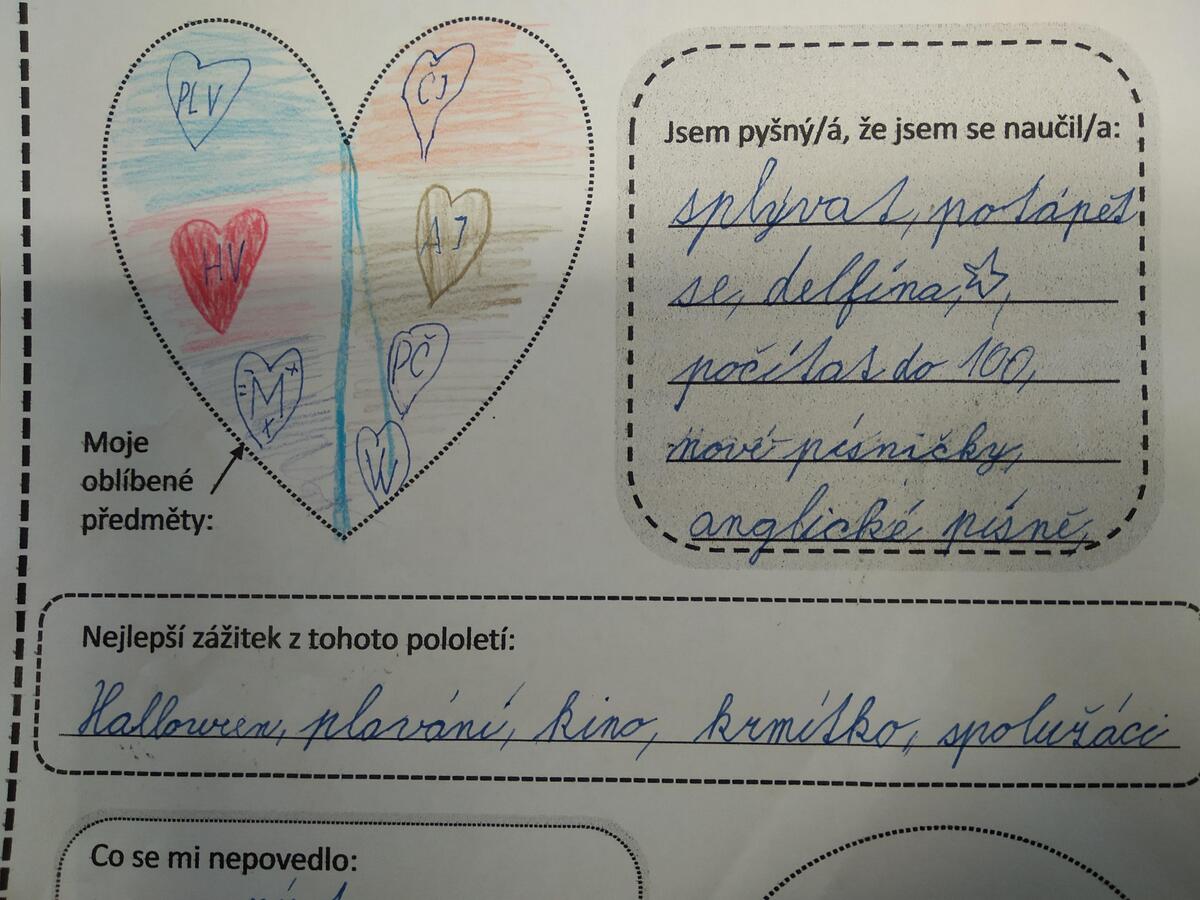 PLV
ČJ
HV
AJ
= M +
+
PČ
VV
Moje
oblíbené
předměty:
Jsem pyšný/á, že jsem se naučil/a:
splývat, potápět
se, delfína,
počítat do 100,
nové písničky,
anglické písně,
Nejlepší zážitek z tohoto pololetí:
Halloween, plavání, kino, krmítko, spolužáci
Co se mi nepovedlo: